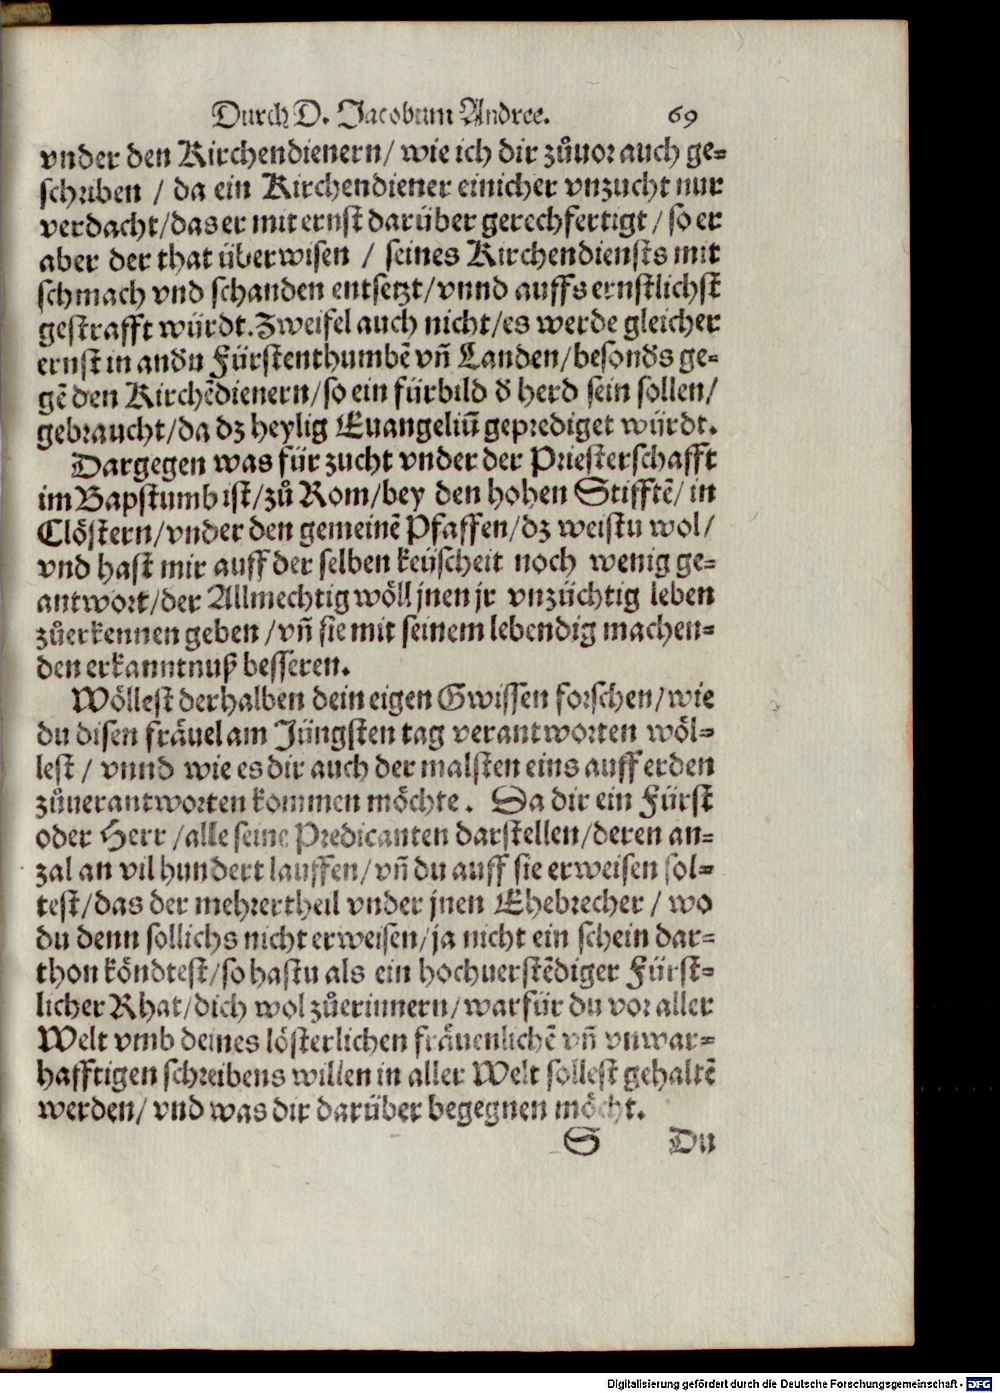 Durch D. Jacobum Andree. 69
vnder den Kirchendienern/ wie ich dir zůuor auch ge-
schriben / da ein Kirchendiener einicher vnzucht nur
verdacht/das er mit ernst darüber gerechfertigt / so er
aber der that überwisen / seines Kirchendiensts mit
schmach vnd schanden entsetzt/vnnd auffs ernstlichst
gestrafft würdt. Zweifel auch nicht/es werde gleicher
ernst in andn Fürstenthumbē vñ Landen/besonds ge-
gē den Kirchēdienern/so ein fürbild d herd sein sollen/
gebraucht/da dz heylig Euangeliū geprediget würdt.
Dargegen was für zucht vnder der Priesterschafft
im Bapstumb ist/zů Rom/bey den hohen Stifftē/ in
Clöstern/vnder den gemeinē Pfaffen/dz weistu wol/
vnd hast mir auff der selben keüscheit noch wenig ge-
antwort/der Allmechtig wöll jnen jr vnzüchtig leben
zůerkennen geben /vñ sie mit seinem lebendig machen-
den erkanntnuß besseren.
Wöllest derhalben dein eigen Gwissen forschen/wie
du disen fräuel am Jüngsten tag verantworten wöl-
lest / vnnd wie es dir auch der malsten eins auff erden
zůuerantworten kommen möchte. Da dir ein Fürst
oder Herr /alle seine Predicanten darstellen/deren an-
zal an vil hundert lauffen/vñ du auff sie erweisen sol-
test/das der mehrertheil vnder jnen Ehebrecher / wo
du denn sollichs nicht erweisen/ja nicht ein schein dar-
thon köndtest/so hastu als ein hochuerstēdiger Fürst-
licher Rhat/dich wol zůerinnern/warfür du vor aller
Welt vmb deines lösterlichen fräuenlichē vñ vnwar-
hafftigen schreibens willen in aller Welt sollest gehaltē
werden/ vnd was dir darüber begegnen möcht.
S Du
Digitalisierung gefördert durch die Deutsche Forschungsgemeinschaft - DFG